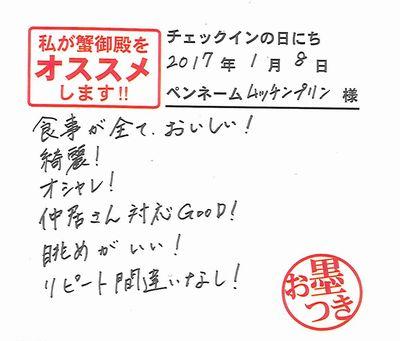 私が蟹御殿を
オススメ
します!!
チェックインの日にち
2017年 1月 8日
ペンネーム ムッチンプリン 様
食事が全て、おいしい!
綺麗!
オシャレ!
仲居さん対応GOOD!
眺めがいい!
リピート間違いなし!
お墨つき